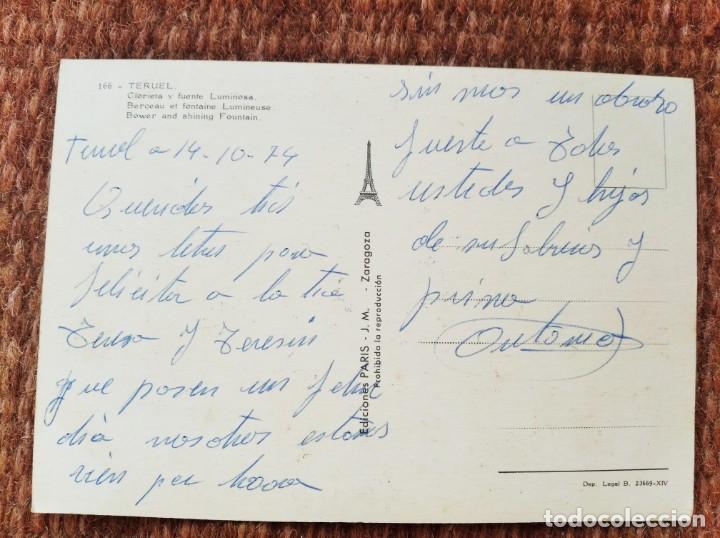 166 - TERUEL.
Glorieta y fuente Luminosa.
Berceau et fontaine Lumineuse.
Bower and shining Fountain.
Teruel a 14-10-74
Queridos tios
unas letras para
felicitar a la tia
Teresa y Teresin
que pasen un feliz
dia nosotros estamos
vien por
sin mas un abrazo
fuerte a todos
ustedes y hijos
de su sobrino y
primo
Antonio
Ediciones PARIS - J. M. - Zaragoza
Prohibida la reproducción
Dep. Legal B. 23669-XIV
todocoleccion.net